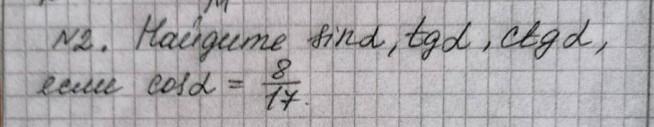 N2. Найдите sinα, tgα, ctgα,
если cosα = 8/17.